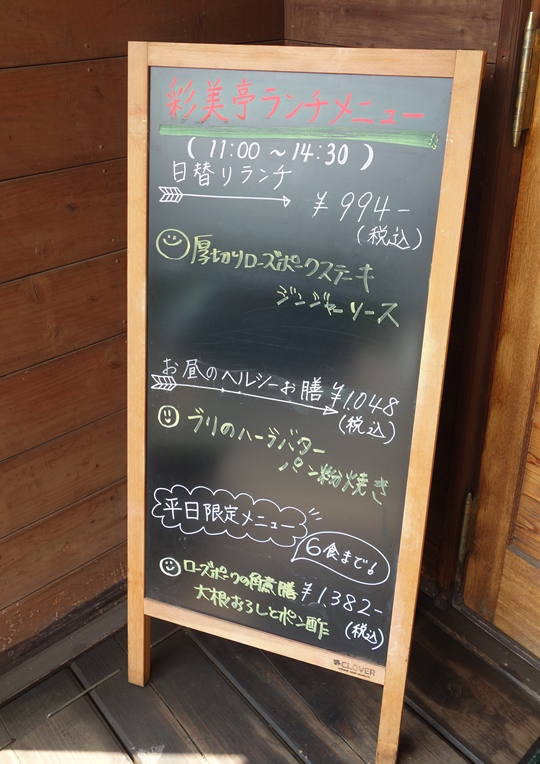 彩美亭ランチメニュー
(11:00～14:30)
日替りランチ
¥994-
(税込)
厚切りローズポークステーキ
ジンジャーソース
お昼のヘルシーお膳 ¥1,048
(税込)
ブリのハーブバター
パン粉焼き
平日限定メニュー
6食まで!
ローズポークの角煮膳 ¥1,382-
大根おろしとポン酢 (税込)
CLOVER